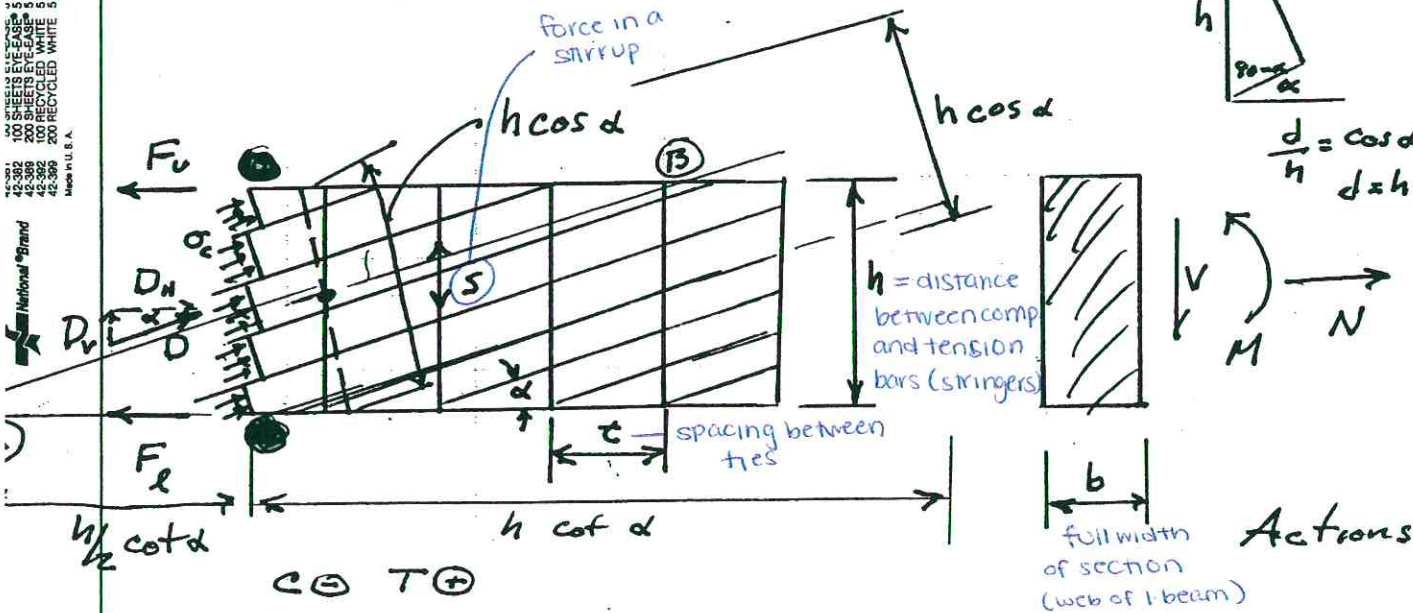 42-382 100 SHEETS EYE-EASE® 5
42-389 200 SHEETS EYE-EASE® 5
42-392 100 RECYCLED WHITE 5
42-399 200 RECYCLED WHITE 5
Made in U.S.A.
National® Brand
force in a
stirrup
h cos α
h cos α
h
90-α
α
d/h = cos α
d = h
Fu
B
σc
S
DN
α
D
Dv
h = distance
between comp
and tension
bars (stringers)
V
M
N
α
t — spacing between
ties
Fl
b
h/2 cot α
h cot α
full width
of section
(web of I-beam)
Actions
C ⊖ T ⊕